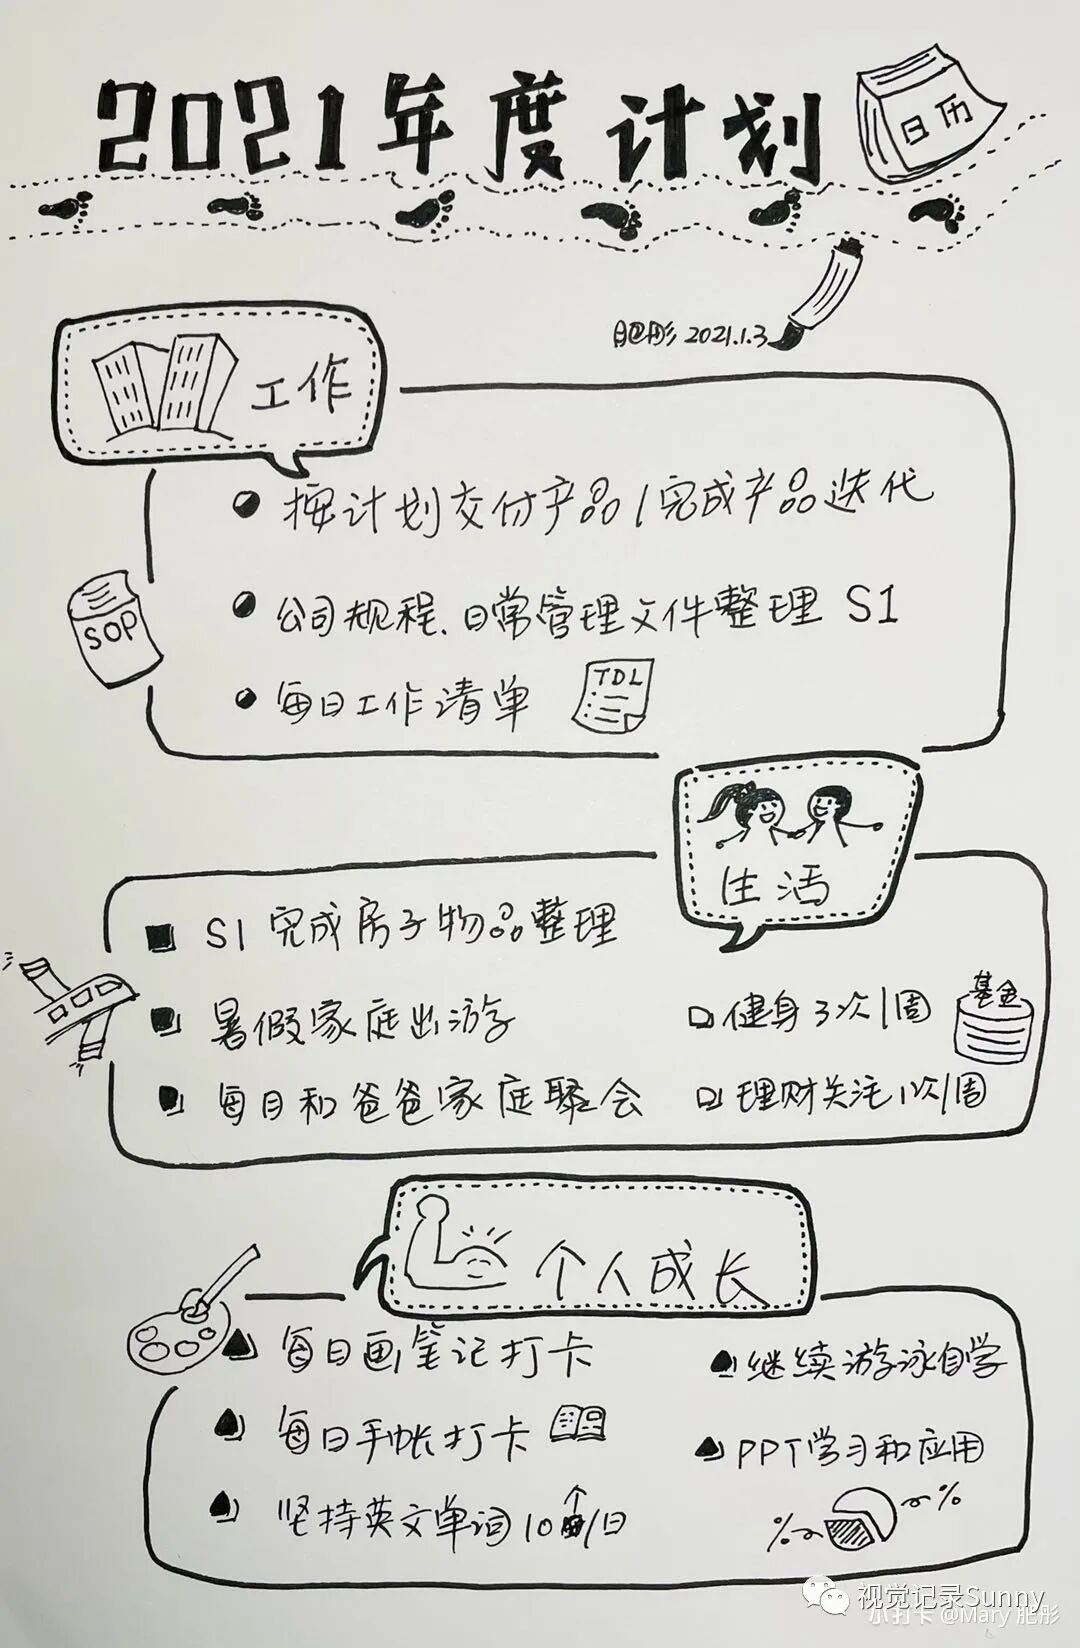 2021年度计划
日历
肥彤 2021.1.3
工作
按计划交付产品/完成产品迭代
公司规程、日常管理文件整理 S1
SOP
每日工作清单
TDL
生活
S1 完成房子物品整理
暑假家庭出游
健身3次/周
基金
每日和爸爸家庭聚会
理财关注1次/周
个人成长
每日画笔记打卡
继续游泳自学
每日手帐打卡
PPT学习和应用
坚持英文单词10个/日
%
%
视觉记录Sunny
小打卡 @Mary 肥彤